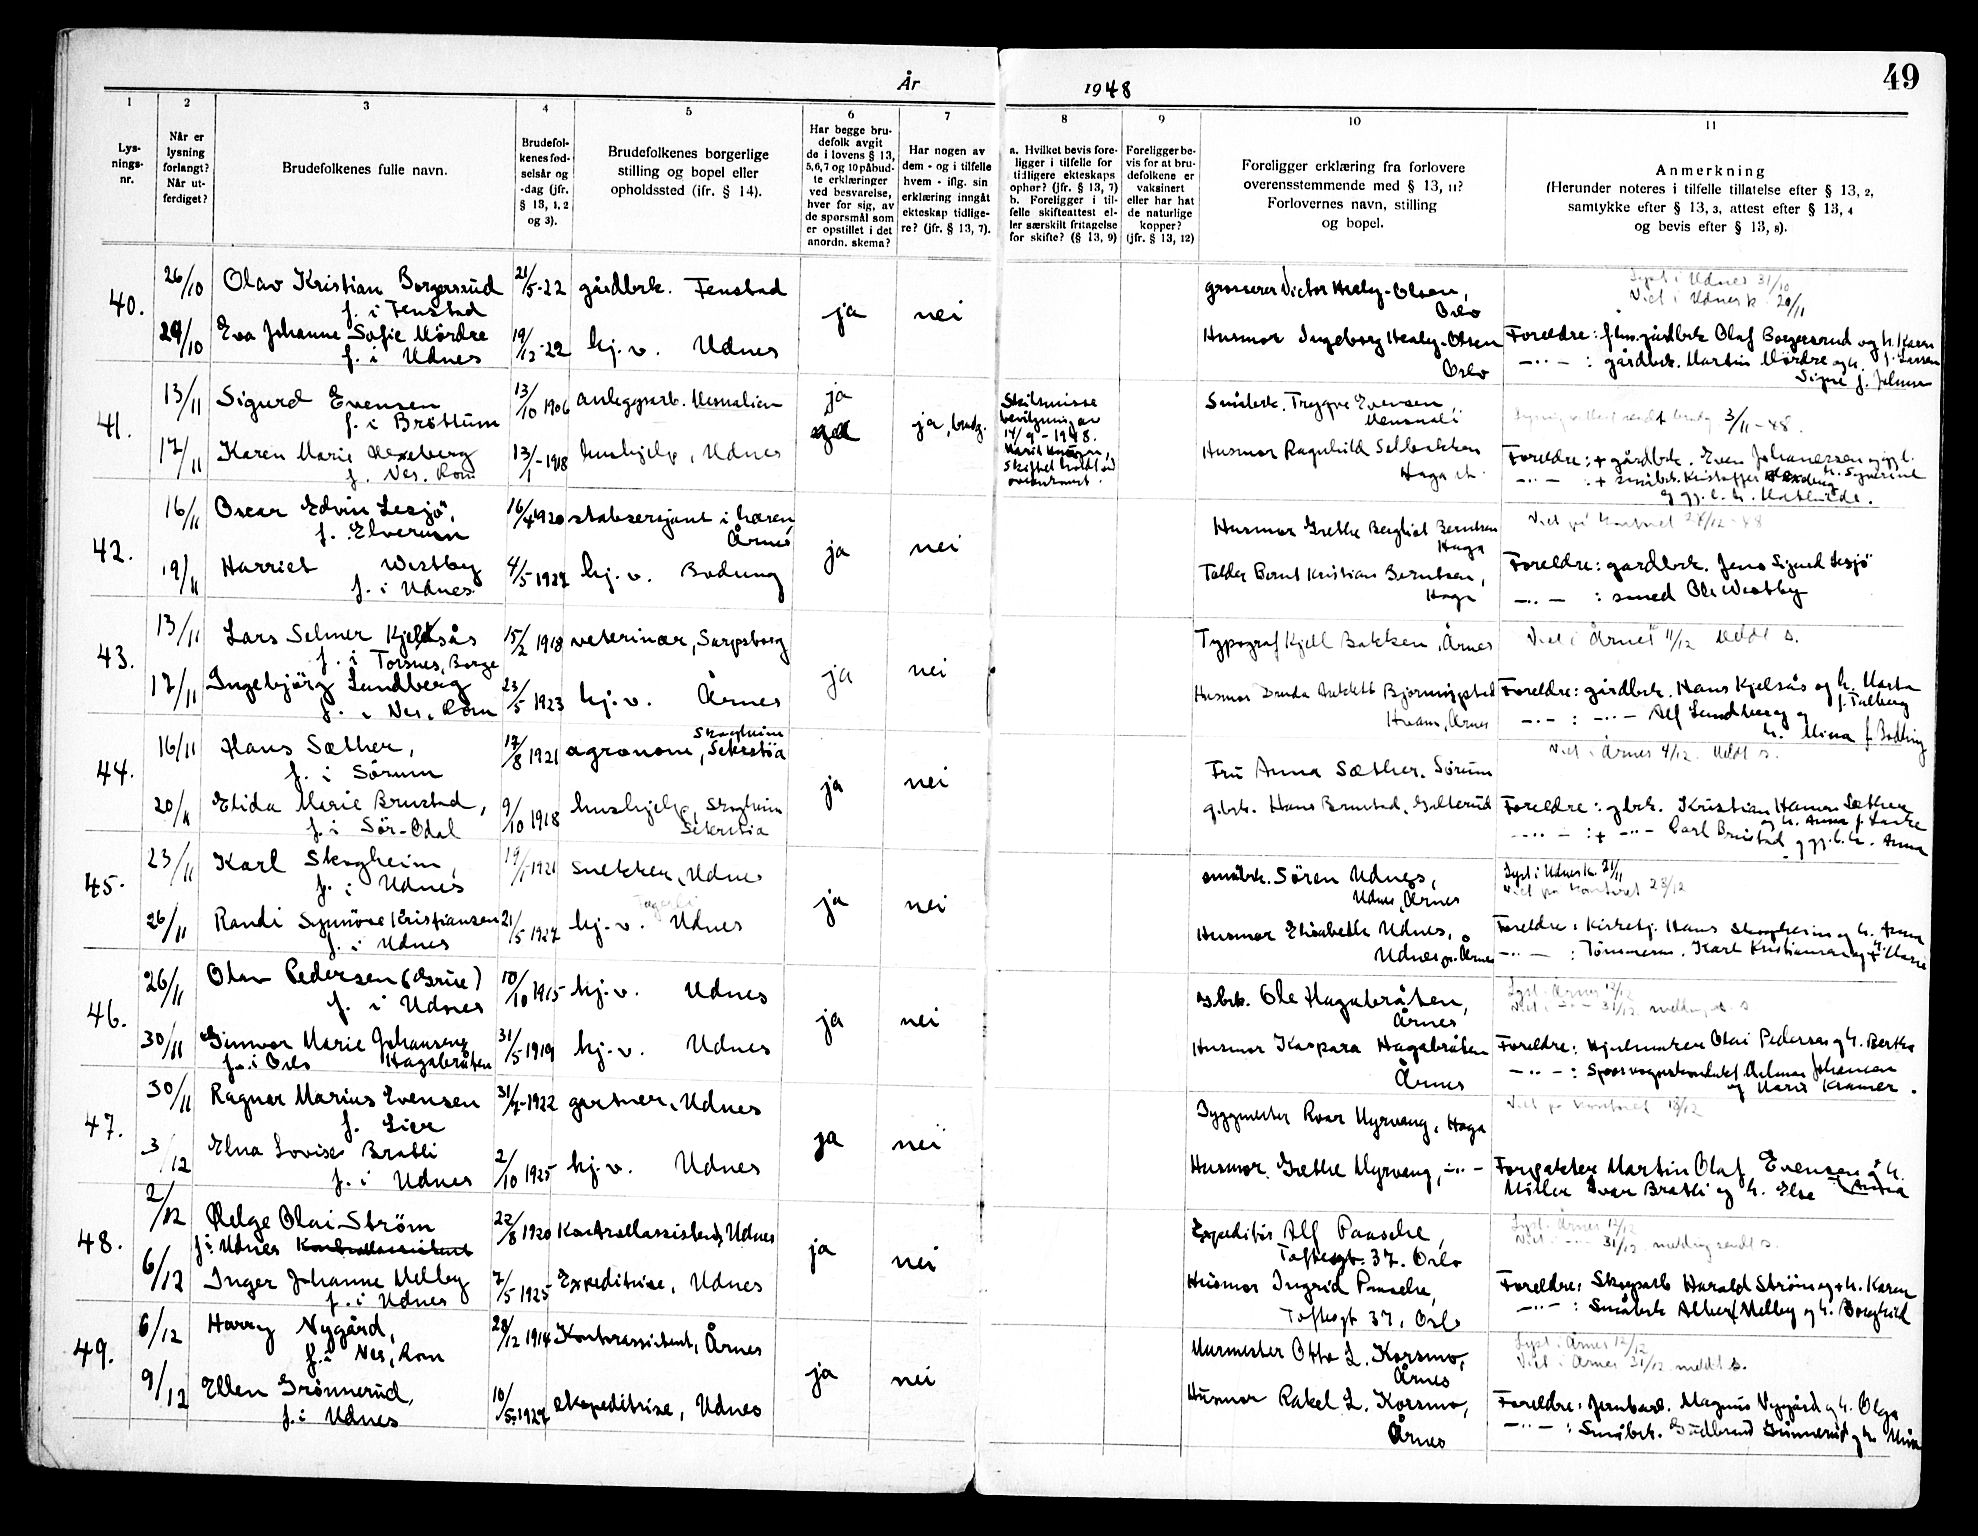 49
År
1948
1
2
3
4
5
6
7
8
9
10
11
Lys-
nings-
nr.
Når er
lysning
forlangt?
Når ut-
ferdiget?
Brudefolkenes fulle navn.
Brudefol-
kenes fød-
selsår og
-dag (jfr.
§ 13, 1, 2
og 3).
Brudefolkenes borgerlige
stilling og bopel eller
opholdssted (jfr. § 14).
Har begge bru-
defolk avgit
de i lovens § 13,
5,6,7 og 10 påbud-
te erklæringer
ved besvarelse,
hver for sig, av
de spørsmål som
er opstillet i det
anordn. skema?
Har nogen av
dem - og i tilfelle
hvem - iflg. sin
erklæring inngått
ekteskap tidlige-
re? (jfr. § 13, 7).
a. Hvilket bevis fore-
ligger i tilfelle for
tidligere ekteskaps
ophør? (jfr. § 13, 7)
b. Foreligger i til-
felle skifteattest el-
ler særskilt fritagelse
for skifte? (§ 13, 9)
Foreligger be-
vis for at bru-
defolkene er
vaksinert
eller har hat
de naturlige
kopper?
(jfr. § 13, 12)
Foreligger erklæring fra forlovere
overensstemmende med § 13, 11?
Forlovernes navn, stilling
og bopel.
Anmerkning
(Herunder noteres i tilfelle tillatelse efter § 13, 2,
samtykke efter § 13, 3, attest efter § 13, 4
og bevis efter § 13, 8).
40.
26/10 Olav Kristian Borgersrud 21/5-22 gårdbrk. Fenstad
f. i Fenstad
29/10 Eva Johanne Sofie Mördre 19/12-22 hj.v. Udnes
f. i Udnes
ja nei
grosserer Victor Heaby-Olsen,
Oslo
Husmor Ingeborg Heaby-Olsen
Oslo
Lyst i Udnes 31/10
Viet i Udnes k. 20/11
Foreldre: gårdbrk Olaf Borgersrud og h. Karen
f. Larsen
—··— : gårdbrk. Martin Mördre og h.
Signe f. Johnsen
41.
13/11 Sigurd Evensen 13/10 1906 anleggsarb.
f. i Bröttum
17/11 Karen Marie Hexeberg 13/1-1918 hushjelp, Udnes
f. Nes, Rom
ja
ja, brudg.
Skilsmisse
bevilgning av
14/9-1948.
Småbrk. Trygve Evensen
Husmor Ragnhild
Haga st.
3/11-48.
Foreldre: + gårdbrk. Even Johanessen
—··— : + småbrk. Kristoffer Hexeberg
og gj.l. h. Mathilde.
42.
16/11 Oscar Edvin Lesjö, 16/4 1920 stabsersjant i hæren
f. Elverum Årnes
19/11 Harriet Westby 4/5 1927 hj.v. Bodung
f. i Udnes
ja nei
Husmor Grethe Bergliot Berntsen
Haga
Tolder Bernt Kristian Berntsen,
Haga
Viet på kontoret 24/12-48
Foreldre: gardbrk. Jens Sigurd Lesjö
—··— : smed Ole Westby
43.
13/11 Lars Selmer Kjelsås 15/2 1918 veterinær, Sarpsborg
f. i Torsnes, Borge
17/11 Ingebjörg Lundberg 23/5 1923 hj.v. Årnes
f. i Nes, Rom
ja nei
Typograf Kjell Bakken, Årnes
Husmor
Hvam, Årnes
Viet i Årnes 11/12 Meldt s.
Foreldre: gårdbrk. Hans Kjelsås og h. Marta
f. Talberg
—··— : —··— Alf Lundberg og
h. Mina f. Bodding
44.
16/11 Hans Sæther, 17/8 1921 agronom, Skogheim
f. i Sörum Seterstöa
20/11 Elida Marie Brustad, 9/10 1918 hushjelp, Skogheim
f. i Sör-Odal Seterstöa
ja nei
Fru Anna Sæther, Sörum
g.brk. Hans Brustad, Galterud
Viet i Årnes 4/12. Meldt s.
Foreldre: g.brk. Kristian Hansen Sæther
og h. Anna f.
—··— : + —··— Carl Brustad og gj.l.h. Anna
45.
23/11 Karl Skogheim, 19/1-1921 snekker, Udnes
f. i Udnes
26/11 Randi Synnöve Kristiansen 21/5 1927 hj.v. Udnes
f. i Udnes
ja nei
småbrk. Sören Udnes,
Udnes, Årnes
Husmor Elisabeth Udnes,
Udnes pr. Årnes
Lyst i Udnes k. 21/11
Viet på kontoret 23/12
Foreldre: Kirketj. Hans Skogheim og h. Anna
—··— : Tömmerm. Karl Kristiansen og h. Marie
46.
26/11 Olav Pedersen (Grue) 10/10 1915 hj.v. Udnes
f. i Udnes
30/11 Gunvor Marie Johansen 31/5 1919 hj.v. Udnes
f. i Oslo Hagabråten
ja nei
g.brk. Ole Hagabråten,
Årnes
Husmor Kaspara Hagabråten
Årnes
Lyst i Årnes 12/12
Viet i —··— 31/12 melding s.
Foreldre: Hjulmaker Olai Pedersen og h. Berthe
—··— : Sporvognskonduktör Johansen
og Marie Kramer.
47.
30/11 Ragnar Marius Evensen 31/7-1922 gartner, Udnes
f. Lier
3/12 Elna Lovise Bratli 2/10 1925 hj.v. Udnes
f. i Udnes
ja nei
Byggmester Roar Myrvang, Haga
Husmor. Grethe Myrvang, —··—
Viet på kontoret 18/12
Forpakter Martin Olaf Evensen og h.
Anna
Möller Ivar Bratli og h. Else
48.
2/12 Helge Olai Ström 22/8 1920 Kontrollassistent, Udnes
f. i Udnes Kontrollassistent
6/12 Inger Johanne Melby 7/5 1925 Expeditrise, Udnes
f. i Udnes
ja nei
Expeditör Alf Paasche,
Toftesgt. 37. Oslo
Husmor Ingrid Paasche,
Toftesgt 37, Oslo
Lyst i Årnes 12/12
Viet i —··— 31/12 melding sendt s.
Foreldre: Skogsarb Harald Ström og h. Karen
—··— : Småbrk Albert Melby og h. Borghild
49.
6/12 Harry Nygård, 28/12 1914 Kontorassistent, Årnes
f. i Nes, Rom
9/12 Ellen Grönnerud, 10/5-1927 ekspeditrise, Udnes
f. i Udnes
ja nei
Murmester Otto L. Korsmo,
Årnes
Husmor Rakel L. Korsmo,
Årnes
Lyst i Årnes 12/12
Viet i Årnes 31/12 meldt s.
Foreldre: Jernbarb. Magnus Nygård og h. Olga
—··— : Småbrk. Gudbrand Grönnerud og h.